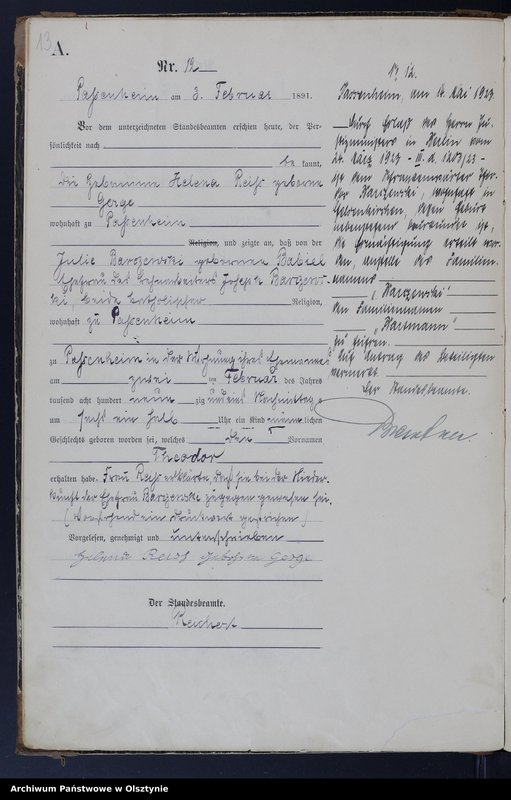 13
A.
Nr. 12
Passenheim am 3. Februar 1891.
Vor dem unterzeichneten Standesbeamten erschien heute, der Per-
sönlichkeit nach
be kannt,
die Hebamme Helena Reiss geborene
Gerge
wohnhaft zu Passenheim
Religion, und zeigte an, daß von der
Julie Bargewski geborenen Babiel
Ehefrau des Joseph Bargews-
ki, beide katholischer Religion,
wohnhaft zu Passenheim
zu Passenheim in der Wohnung ihres Ehemannes
am zwei ten Februar des Jahres
tausend acht hundert neun zig und eins Nachmittags
um sechs ein halb Uhr ein Kind männlichen
Geschlechts geboren worden sei, welches den Vornamen
Theodor
erhalten habe. Frau Reiss erklärte, daß sie bei der Nieder-
kunft der Ehefrau Bargewski zugegen gewesen sei.
(Vorstehend ein Druckwort gestrichen)
Vorgelesen, genehmigt und unterschrieben
Helena Reiss geborene Gerge
Der Standesbeamte.
Reichert
N. 12.
Passenheim, am 14. Mai 1923.
Durch Erlaß des Herrn Ju-
stizministers in Berlin vom
24. März 1923
ist dem Theo-
dor Bargewski, wohnhaft in
Gelsenkirchen, dessen Geburt
nebenstehend beurkundet ist,
die Ermächtigung erteilt wor-
den, anstelle des Familien-
namens
"Bargewski"
den Familiennamen
"Hartmann"
zu führen.
Auf Antrag des Beteiligten
vermerkt
Der Standesbeamte.
Archiwum Państwowe w Olsztynie